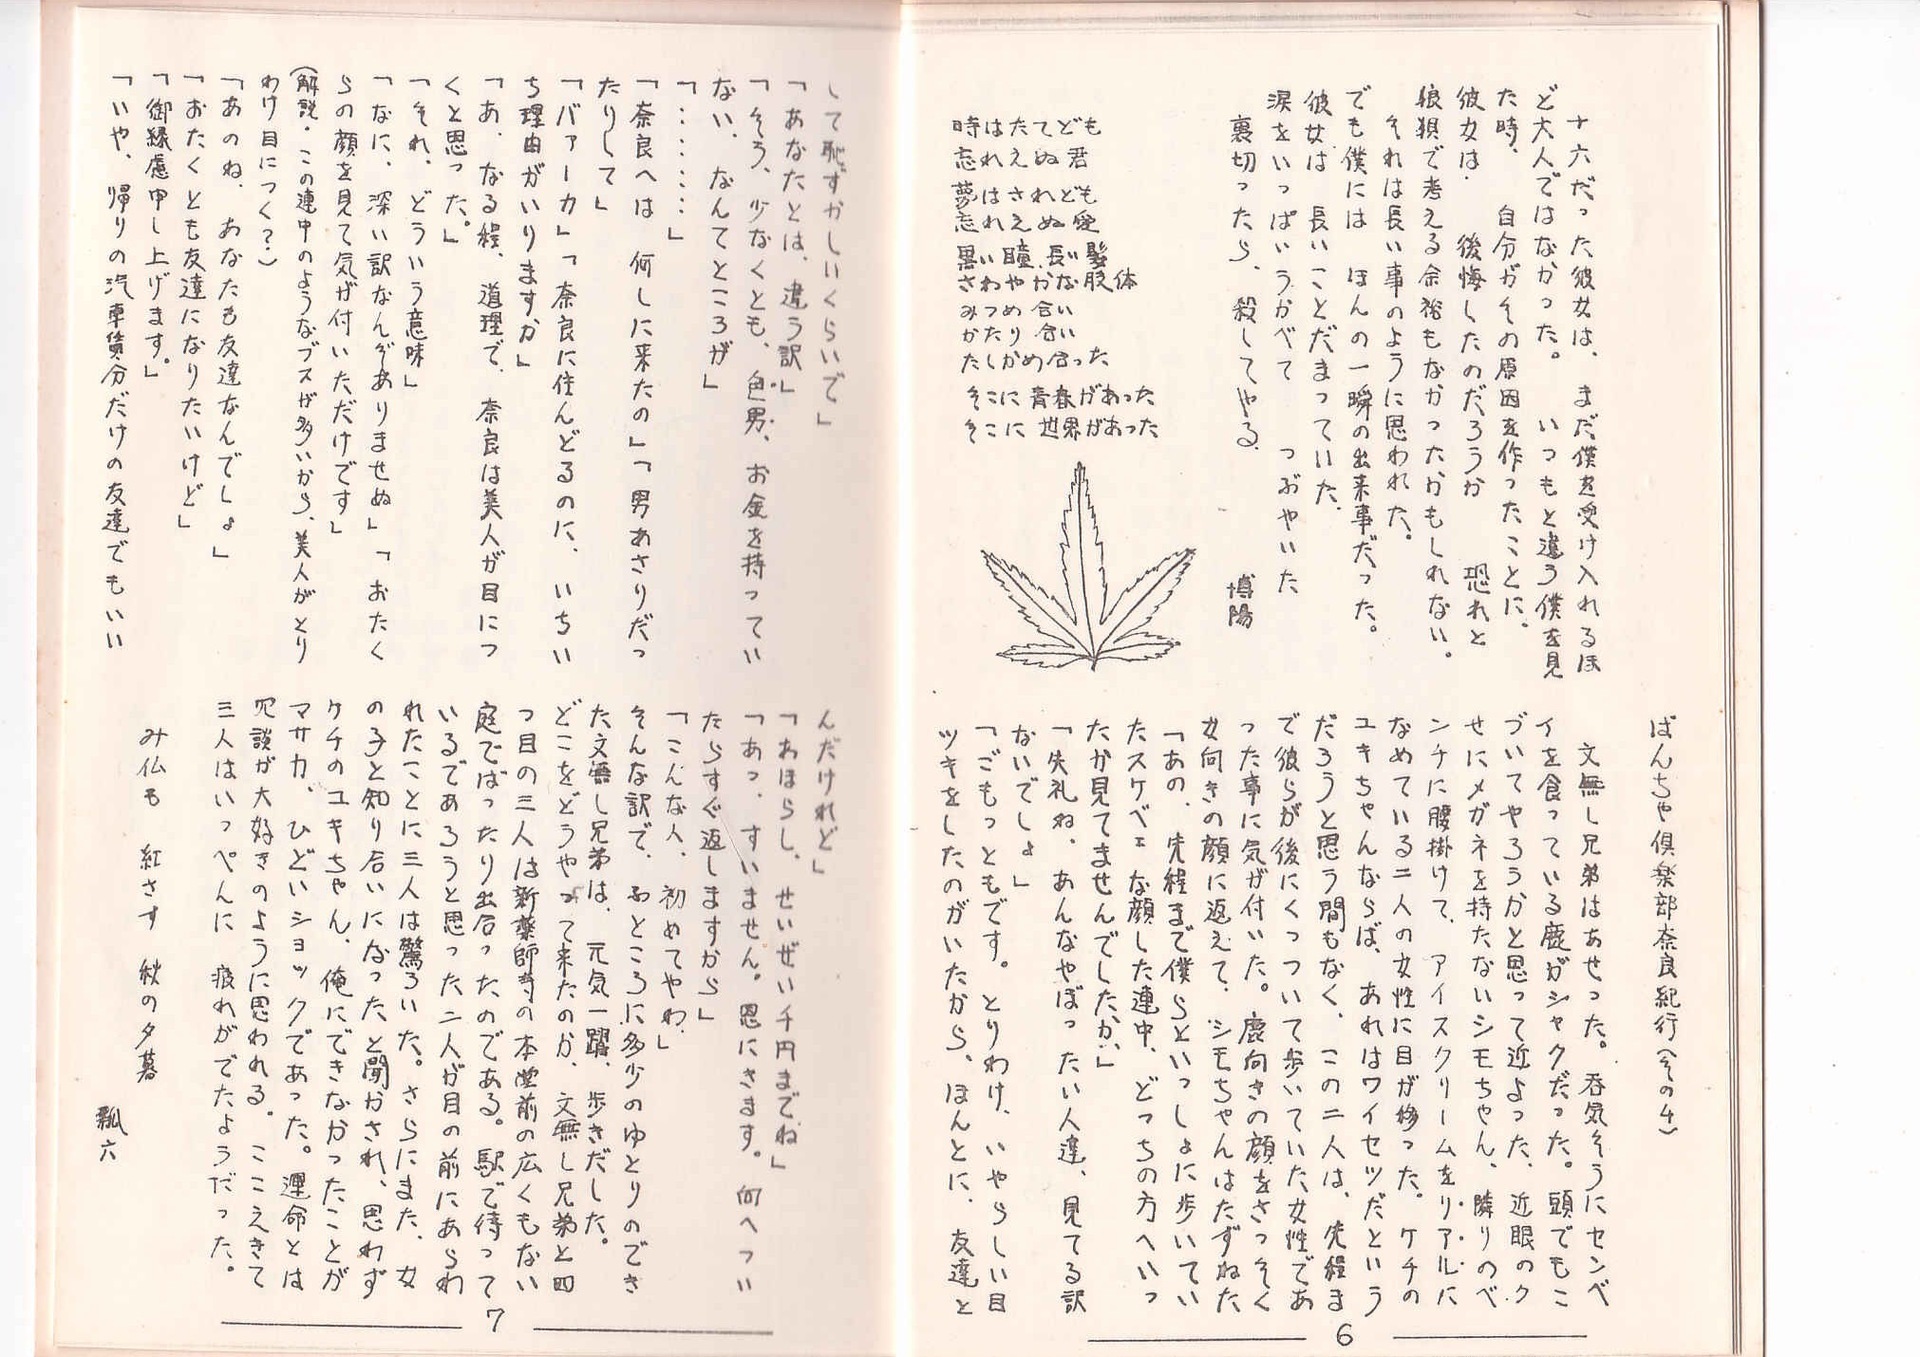 十六だった彼女は、まだ僕を受け入れるほ
ど大人ではなかった。 いつもと違う僕を見
た時、 自分がその原因を作ったことに、
彼女は、 後悔したのだろうか 恐れと
狼狽で考える余裕もなかったかもしれない。
それは長い事のように思われた。
でも僕には ほんの一瞬の出来事だった。
彼女は 長いことだまっていた、
涙をいっぱいうかべて つぶやいた
裏切ったら、殺してやる、
博陽
時はたてども
忘れえぬ君
夢はされども
忘れえぬ愛
黒い瞳、長い髪
さわやかな肢体
みつめ合い
かたり合い
たしかめ合った
そこに青春があった
そこに世界があった
ばんちゃ倶楽部奈良紀行(その4)
文無し兄弟はあせった。呑気そうにセンベ
イを食っている鹿がシャクだった。頭でもこ
づいてやろうかと思って近よった、近眼のク
せにメガネを持たないシモちゃん、隣りのベ
ンチに腰掛けて、アイスクリームをリアルに
なめている二人の女性に目が移った。ケチの
ユキちゃんならば、あれはワイセツだという
だろうと思う間もなく、この二人は、先程ま
で彼らが後にくっついて歩いていた女性であ
った事に気が付いた。鹿向きの顔をさっそく
女向きの顔に返えて、シモちゃんはたずねた
「あの、先程まで僕らといっしょに歩いてい
たスケベェな顔した連中、どっちの方へいっ
たか見てませんでしたか、」
「失礼ね、あんなやぼったい人達、見てる訳
ないでしょ」
「ごもっともです。とりわけ、いやらしい目
ツキをしたのがいたから、ほんとに、友達と
6
して恥ずかしいくらいで」
「あなたとは、違う訳」
「そう、少なくとも、色男、お金を持ってい
ない、なんてところが」
「‥‥‥‥」
「奈良へは 何しに来たの」「男あさりだっ
たりして」
「バァーカ」「奈良に住んどるのに、いちい
ち理由がいりますか」
「あ、なる程、道理で、奈良は美人が目につ
くと思った。」
「それ、どういう意味」
「なに、深い訳なんぞありませぬ」「おたく
らの顔を見て気が付いただけです」
(解説・この連中のようなブスが多いから、美人がとり
わけ目につく?)
「あのね、あなたも友達なんでしょ」
「おたくとも友達になりたいけど」
「御縁慮申し上げます。」
「いや、帰りの汽車賃分だけの友達でもいい
んだけれど」
「わほらし、せいぜい千円までね」
「あっ、すいません。恩にきます。何へつい
たらすぐ返しますから」
「こんな人、初めてやわ、」
そんな訳で、ふところに多少のゆとりのでき
た文無し兄弟は、元気一躍、歩きだした。
どこをどうやって来たのか、文無し兄弟と四
つ目の三人は新薬師寺の本堂前の広くもない
庭でばったり出合ったのである。駅で待って
いるであろうと思った二人が目の前にあらわ
れたことに三人は驚ろいた。さらにまた、女
の子と知り合いになったと聞かされ、思わず
ケチのユキちゃん、俺にできなかったことが
マサカ、ひどいショックであった。運命とは
冗談が大好きのように思われる。ここえきて
三人はいっぺんに 疲れがでたようだった。
み仏も 紅さす 秋の夕暮
瓢六
7